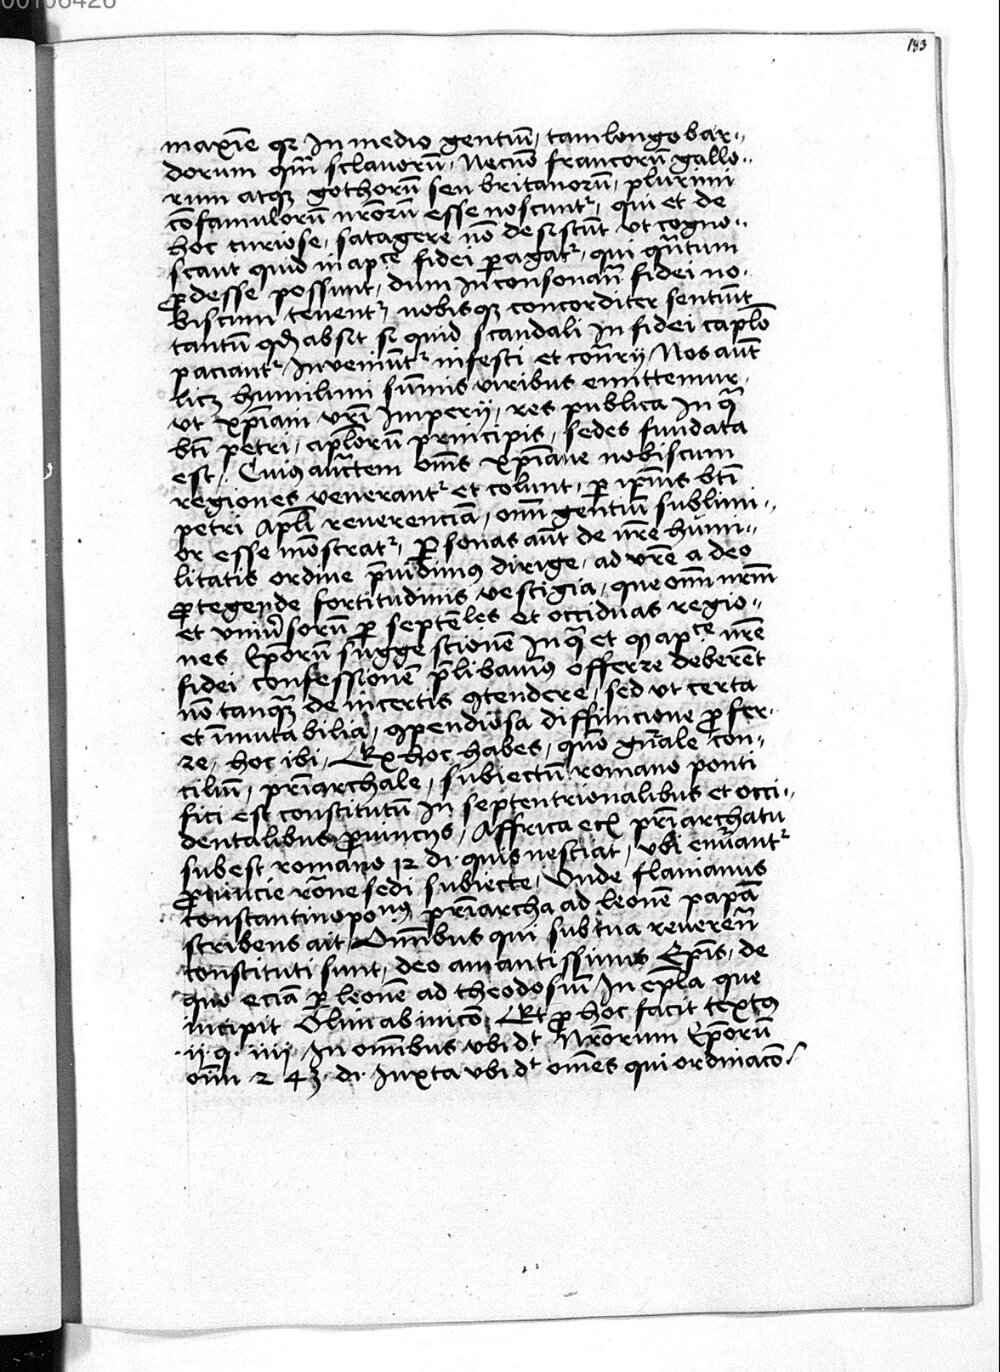 00106426
183
maxīe qꝛ In medio gentiū / tam longobar⸗
dorum qm̄ sclauorū / Necnō francorū gallo⸗
rum atqꝫ gothorū seu britanorū / plurimi
cōfamulorū nr̄orū esse noscuntᵣ / qui et de
hoc curiose / satagere nō desistūt vt cogno⸗
scant quid in apᶜᵉ fidei ꝑagatᵣ / qui qn̄tum
ꝓdesse possunt / dum In consonan̄ fidei no⸗
biscum tenentᵣ / nobisqꝫ concorditer sentiūt
tantū qđ absit si quid scandali In fidei cap̄lo
paciantᵣ / Inveniūtᵣ infesti et con̄rij / Nos aūt
licꝫ humilimi sūmis viribus emittemur /
vt xp̄iani vr̄i Imperij / res publica In qᵃ
bt̄i petri / ap̄lorū principis / sedes fundata
est / Cuius auctem om̄s xp̄iane nobiscum
regiones venerantᵣ et colunt / ꝑ ip̄ius bt̄i
petri Apl̄i reverenciā / om̄ gentiū sublimi⸗
or esse mōstratᵣ / ꝑsonas aūt de nr̄e humi⸗
litatis ordine p̄uidimus dirige / ad vr̄e a deo
ꝓtegende fortitudinis vestigia / que om̄ nr̄m
et vniūsorū ꝑ septēles et occiduas regio⸗
nes Ep̄orū suggestionē In qᵃ et apᶜᵉ nr̄e
fidei confessionē p̄libauimꝰ offerre deberēt
nō tanqꝫ de incertis ꝯtendere / sed vt certa
et īmutabilia / ꝯpendiosa diffinicione ꝓfer⸗
re / hoc ibi / Ex hoc habes / quō gn̄ale con⸗
ciliū / pr̄iarchale / subiectū romano ponti
fici est constitutū In septentrionalibus et occi⸗
dentalibus ꝓuincijs / Affrica ecī pr̄iarchatu
subest romano 12 di · quis nesciat / vbi enūantᵣ
ꝓuincie rōne sedi subiecte / Vnde flauianus
constantinopoⁿᵘˢ pr̄iarcha ad leonē papā
scribens ait / Om̄ibus qui sub tua reueren̄
constituti sunt / deo amantissimis Ep̄is / de
quo eciā ꝑ leonē ad theodosiū / In ep̄la que
incipit Olim ab inicō / Et ꝓ hoc facit textꝰ
· ij · q · iiij In om̄ibus vbi dᵗ Nr̄orum Ep̄orū
om̄ 2 43 · di · Iuxta vbi dᵗ om̄es qui ordinacō /